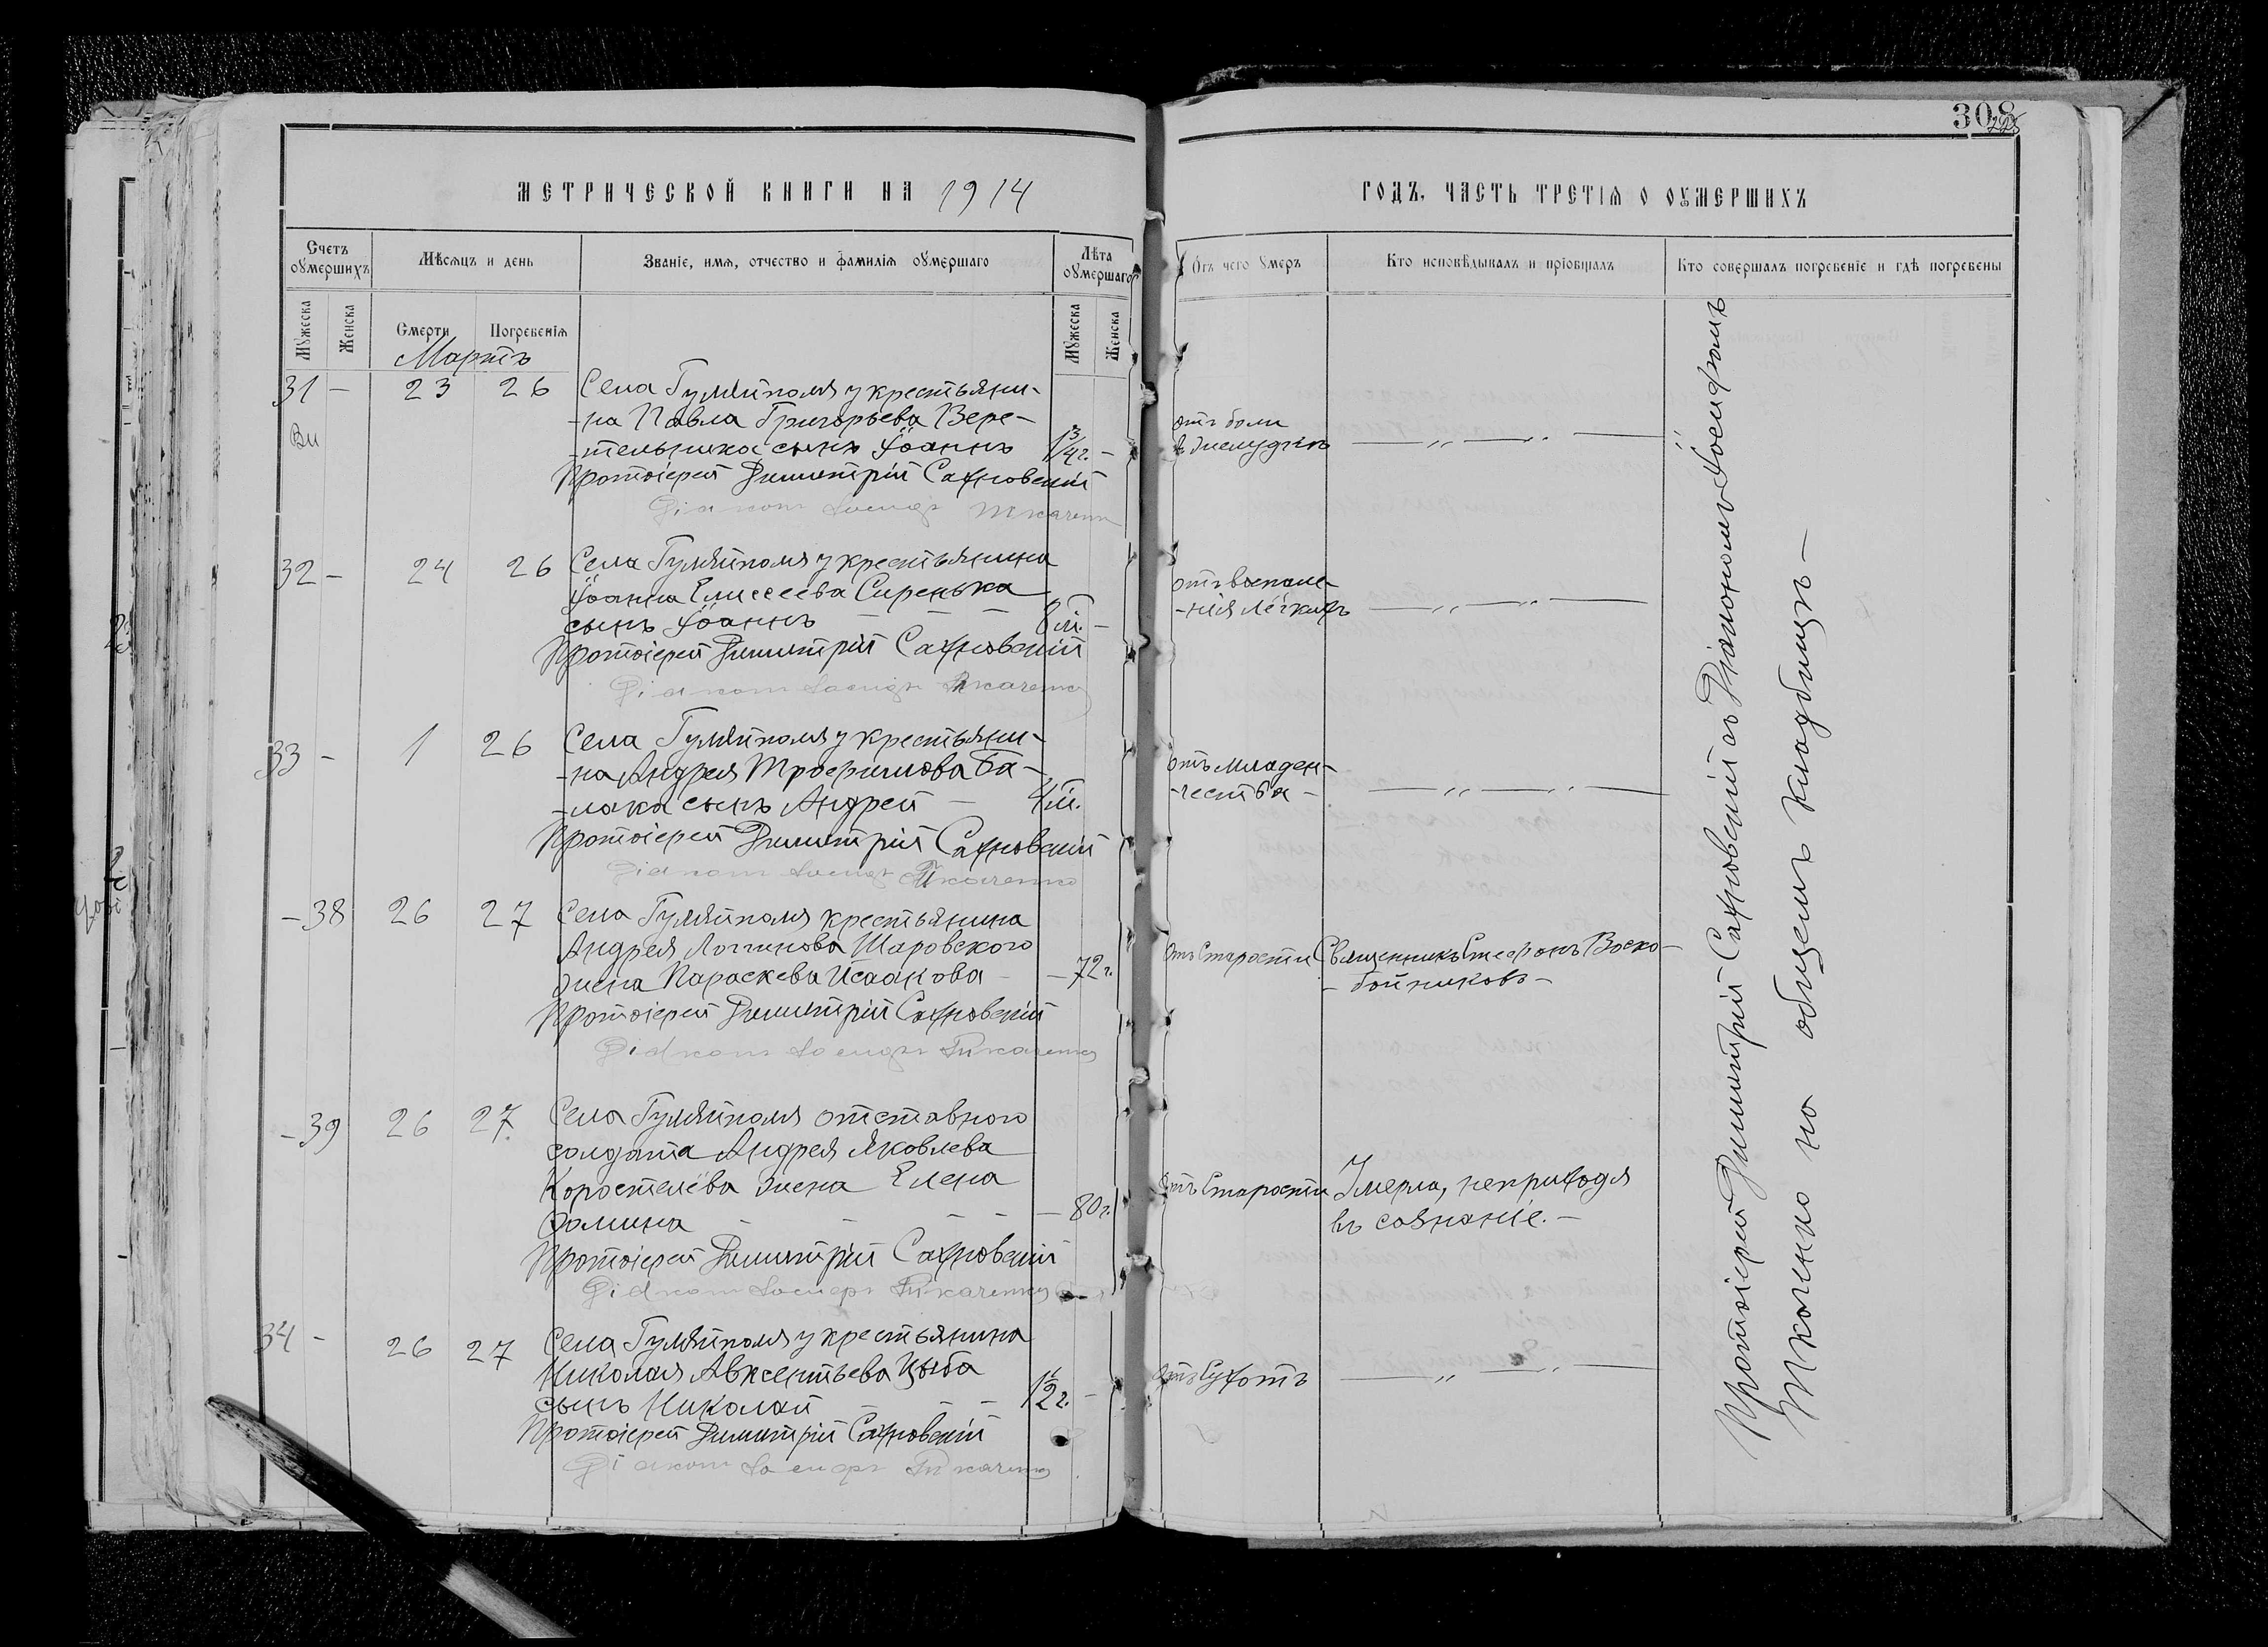 308
МЕТРИЧЕСКОЙ КНИГИ НА 1914
Счетъ оумершихъ
Мѣсяцъ и день
Званіе, имя, отчество и фамилія оумершаго
Лѣта оумершаго
Мужеска
Женска
Смерти
Погребенія
Мужеска
Женска
Мартъ
31 – 23 26 Села Гуляйполя у крестьяни-
-на Павла Григорьева Вере-
-тельника сынъ Іоаннъ 1 3/4 г. –
Протоіерей Димитрій Сахновскій
Діаконъ Іосифъ Ткаченко
32 – 24 26 Села Гуляйполя у крестьянина
Іоанна Елисеева Сиренька
сынъ Іоаннъ – – – 8 м. –
Протоіерей Димитрій Сахновскій
Діаконъ Іосифъ Ткаченко
33 – 1 26 Села Гуляйполя у крестьяни-
-на Андрея Трофимова Ба-
-лака сынъ Андрей – 4 м.
Протоіерей Димитрій Сахновскій
Діаконъ Іосифъ Ткаченко
– 38 26 27 Села Гуляйполя крестьянина
Андрея Логинова Шаровского
жена Параскева Исаакова – – 72 г.
Протоіерей Димитрій Сахновскій
Діаконъ Іосифъ Ткаченко
– 39 26 27 Села Гуляйполя отставного
солдата Андрея Яковлева
Коростелёва жена Елена
Фомина – – – – – 80 г.
Протоіерей Димитрій Сахновскій
Діаконъ Іосифъ Ткаченко
34 – 26 27 Села Гуляйполя у крестьянина
Николая Авксентьева Цыба
сынъ Николай – – – 1 1/2 г. –
Протоіерей Димитрій Сахновскій
Діаконъ Іосифъ Ткаченко
ГОДЪ, ЧАСТЬ ТРЕТІЯ О ОУМЕРШИХЪ
Отъ чего умеръ
Кто исповѣдывалъ и пріобщалъ
Кто совершалъ погребеніе и гдѣ погребены
отъ боли
въ желудкѣ — „ — „ —
отъ воспале-
-нія лёгкихъ — „ — „ —
отъ младен-
-чества – — „ — „ —
отъ Старости Священникъ Стефанъ Воско-
- бойниковъ –
отъ Старости Умерла, неприходя
въ сознаніе. –
отъ Сухотъ — „ — „ —
Протоіерей Димитрій Сахновскій съ Діакономъ Іосифомъ
Ткаченко на общемъ кладбищѣ –